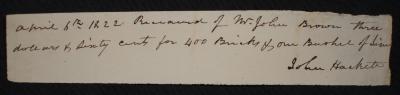 April 6th 1822 Received of Mr John Brown three
dollars & sixty cents for 400 Bricks & one Bushel of Lime
John Hackett